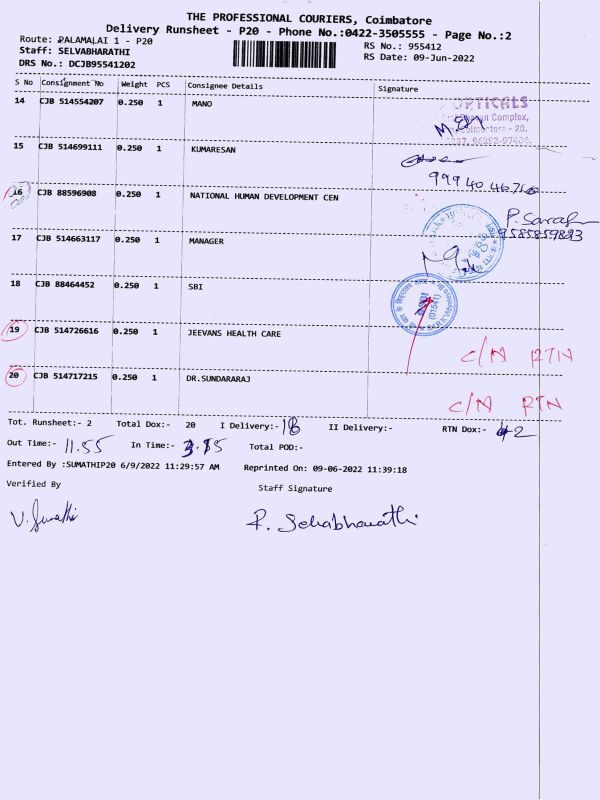 THE PROFESSIONAL COURIERS, Coimbatore
Delivery Runsheet - P20 - Phone No.:0422-3505555 - Page No.:2
Route: PALAMALAI 1 - P20
RS No.: 955412
Staff: SELVABHARATHI
RS Date: 09-Jun-2022
DRS No.: DCJB95541202
S No Consignment No Weight PCS Consignee Details Signature
14 CJB 514554207 0.250 1 MANO
OPTICALS
Complex,
15 CJB 514699111 0.250 1 KUMARESAN
16 CJB 88596908 0.250 1 NATIONAL HUMAN DEVELOPMENT CEN
9585859893
17 CJB 514663117 0.250 1 MANAGER
18 CJB 88464452 0.250 1 SBI
(01641)
19 CJB 514726616 0.250 1 JEEVANS HEALTH CARE
C/N RTN
20 CJB 514717215 0.250 1 DR.SUNDARARAJ
C/N RTN
Tot. Runsheet:- 2 Total Dox:- 20 I Delivery:- 18 II Delivery:- RTN Dox:- 2
Out Time:- 11.55 In Time:- 3.15 Total POD:-
Entered By :SUMATHIP20 6/9/2022 11:29:57 AM Reprinted On: 09-06-2022 11:39:18
Verified By Staff Signature
V. Sumathi R. Selvabharathi